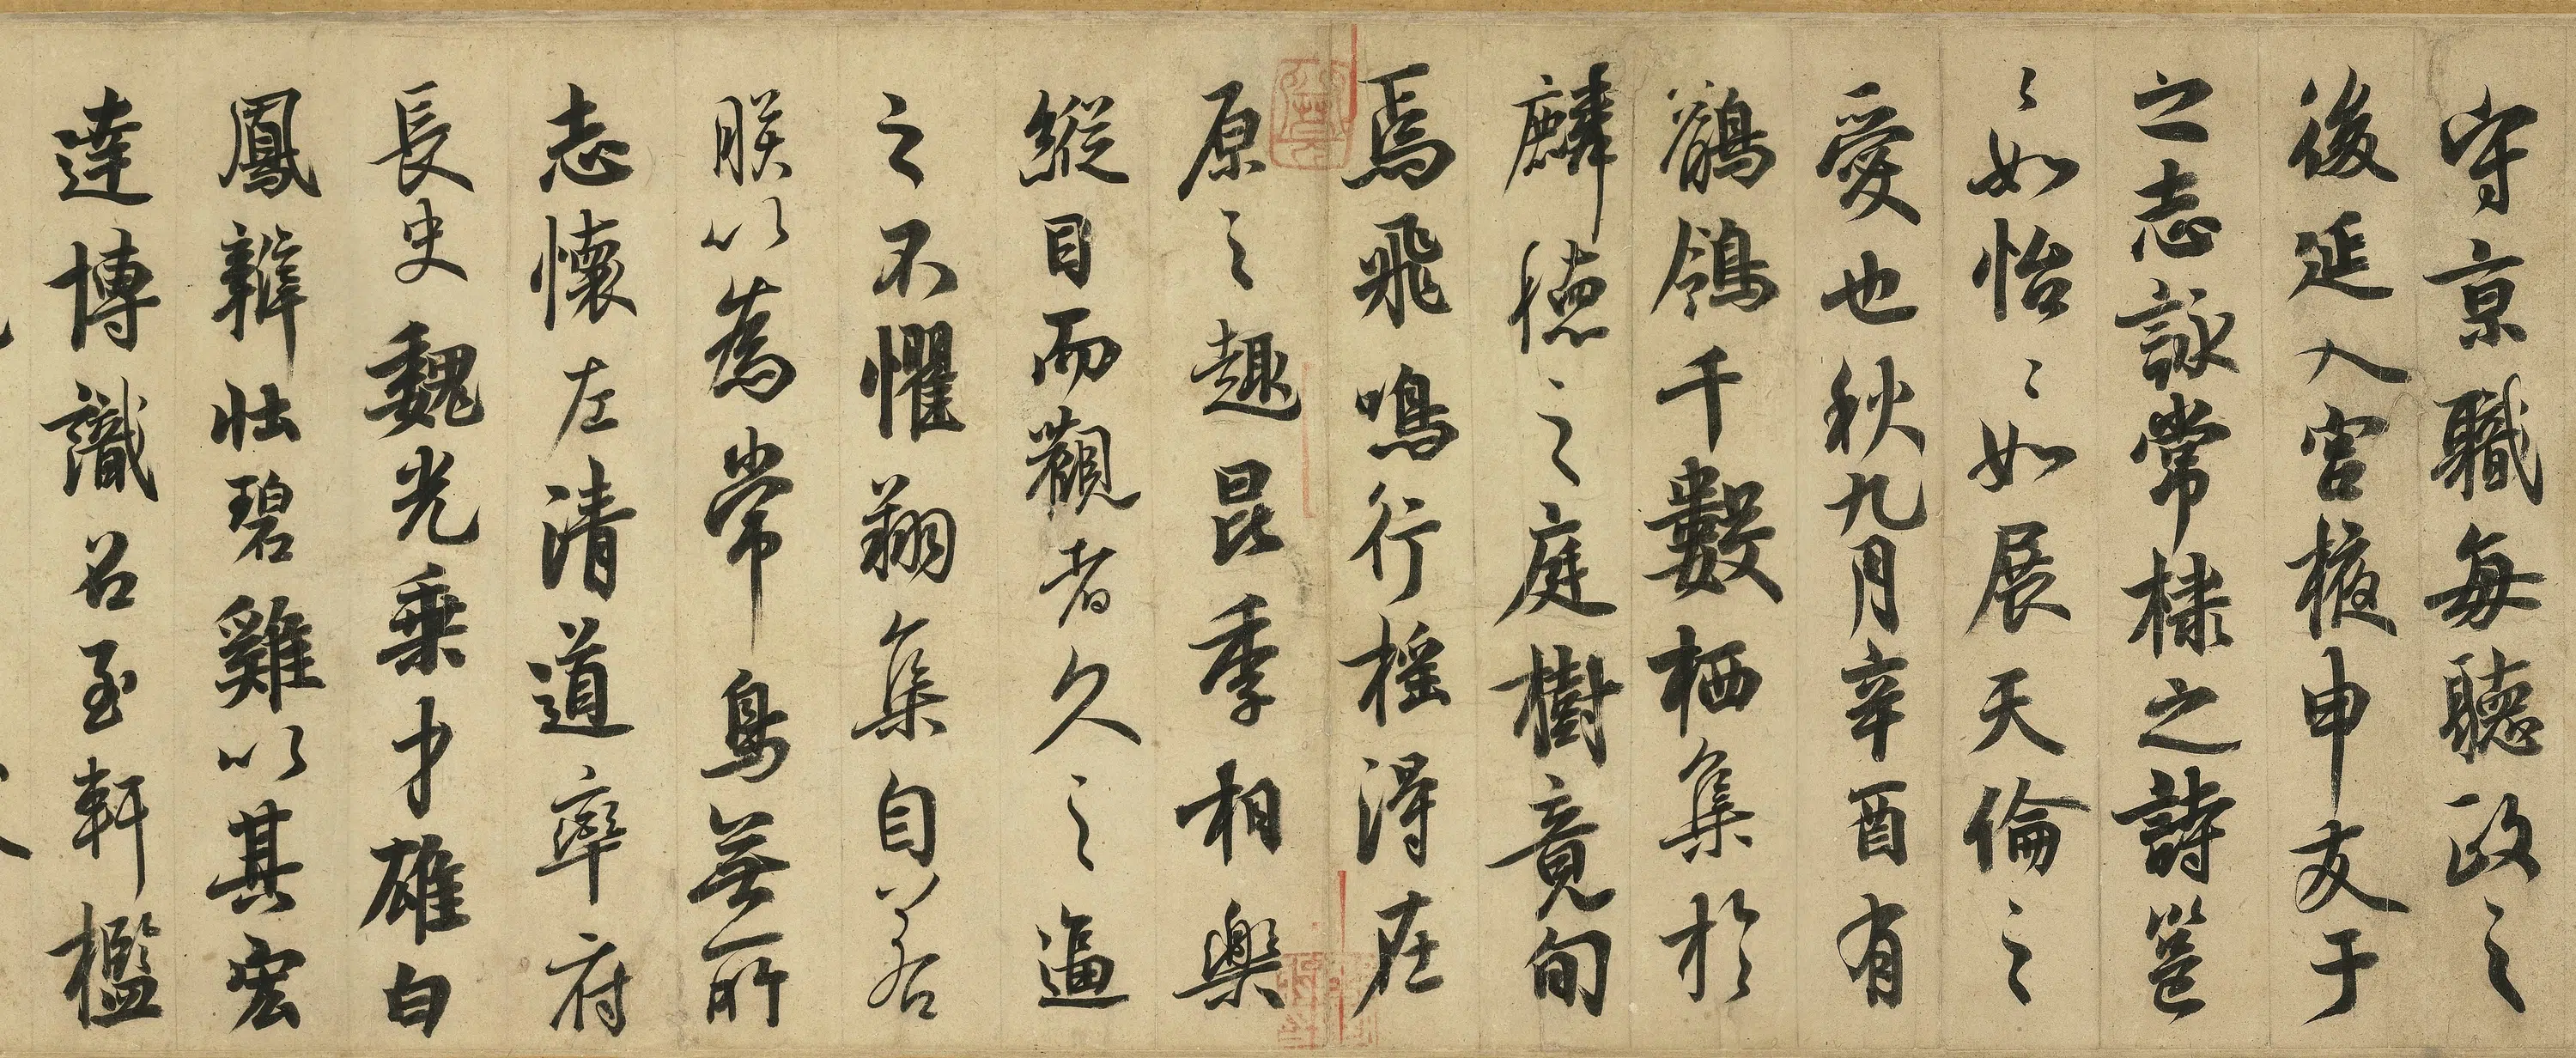 守京職每聽政之
後延入宮掖申友于
之志詠常棣之詩邕
〻如怡〻如展天倫之
愛也秋九月辛酉有
鶺鴒千數栖集於
麟德之庭樹竟旬
焉飛鳴行搖得在
原之趣昆季相樂
縱目而觀者久之逼
之不懼翔集自若
朕以為常鳥無所
志懷左清道率府
長史魏光乗才雄白
鳳辯壯碧雞以其宏
達博識召至軒檻